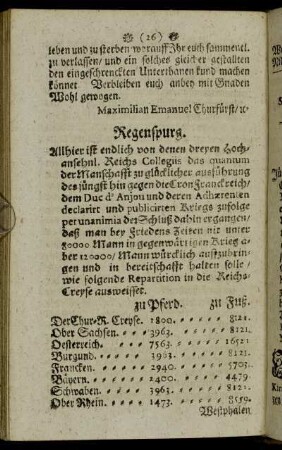 (26)
leben und zu sterben worauff Ihr euch sammentl.
zu verlassen/ und ein solches gleicher gestalten
den eingeschrenckten Unterthanen kund machen
könnet Verbleiben euch anbey mit Gnaden
Wohl gewogen.
Maximilian Emanuel Churfürst/ ꝛc
Regenspurg.
Allhier ist endlich von denen dreyen Hoch-
ansehnl. Reichs Collegiis das quantum
der Manschafft zu glücklicher ausführung
des jüngst hin gegen die Cron Franckreich/
dem Duc d' Anjou und deren Adhærenten
declarirt und publicirten Kriegs zufolge
per unanimia der Schluß dahin ergangen/
daß man bey Friedens Zeiten nit unter
80000 Mann in gegenwärtigen Krieg a-
ber 120000/ Mann würcklich auffzubrin-
gen und in bereitschafft halten solle/
wie folgende Repartition in die Reichs-
Creyse ausweisset.
zu Pferd. zu Fuß.
Der Chur-R. Creyse. 1800. 8121.
Ober Sachsen. 3963. 8121.
Oesterreich. 7563. 16521
Burgund. 3963. 8121.
Francken. 2940. 5703.
Bäyern. 2400. 4479
Schwaben. 3963. 8121.
Ober Rhein. 1473. 8559.
Westphalen